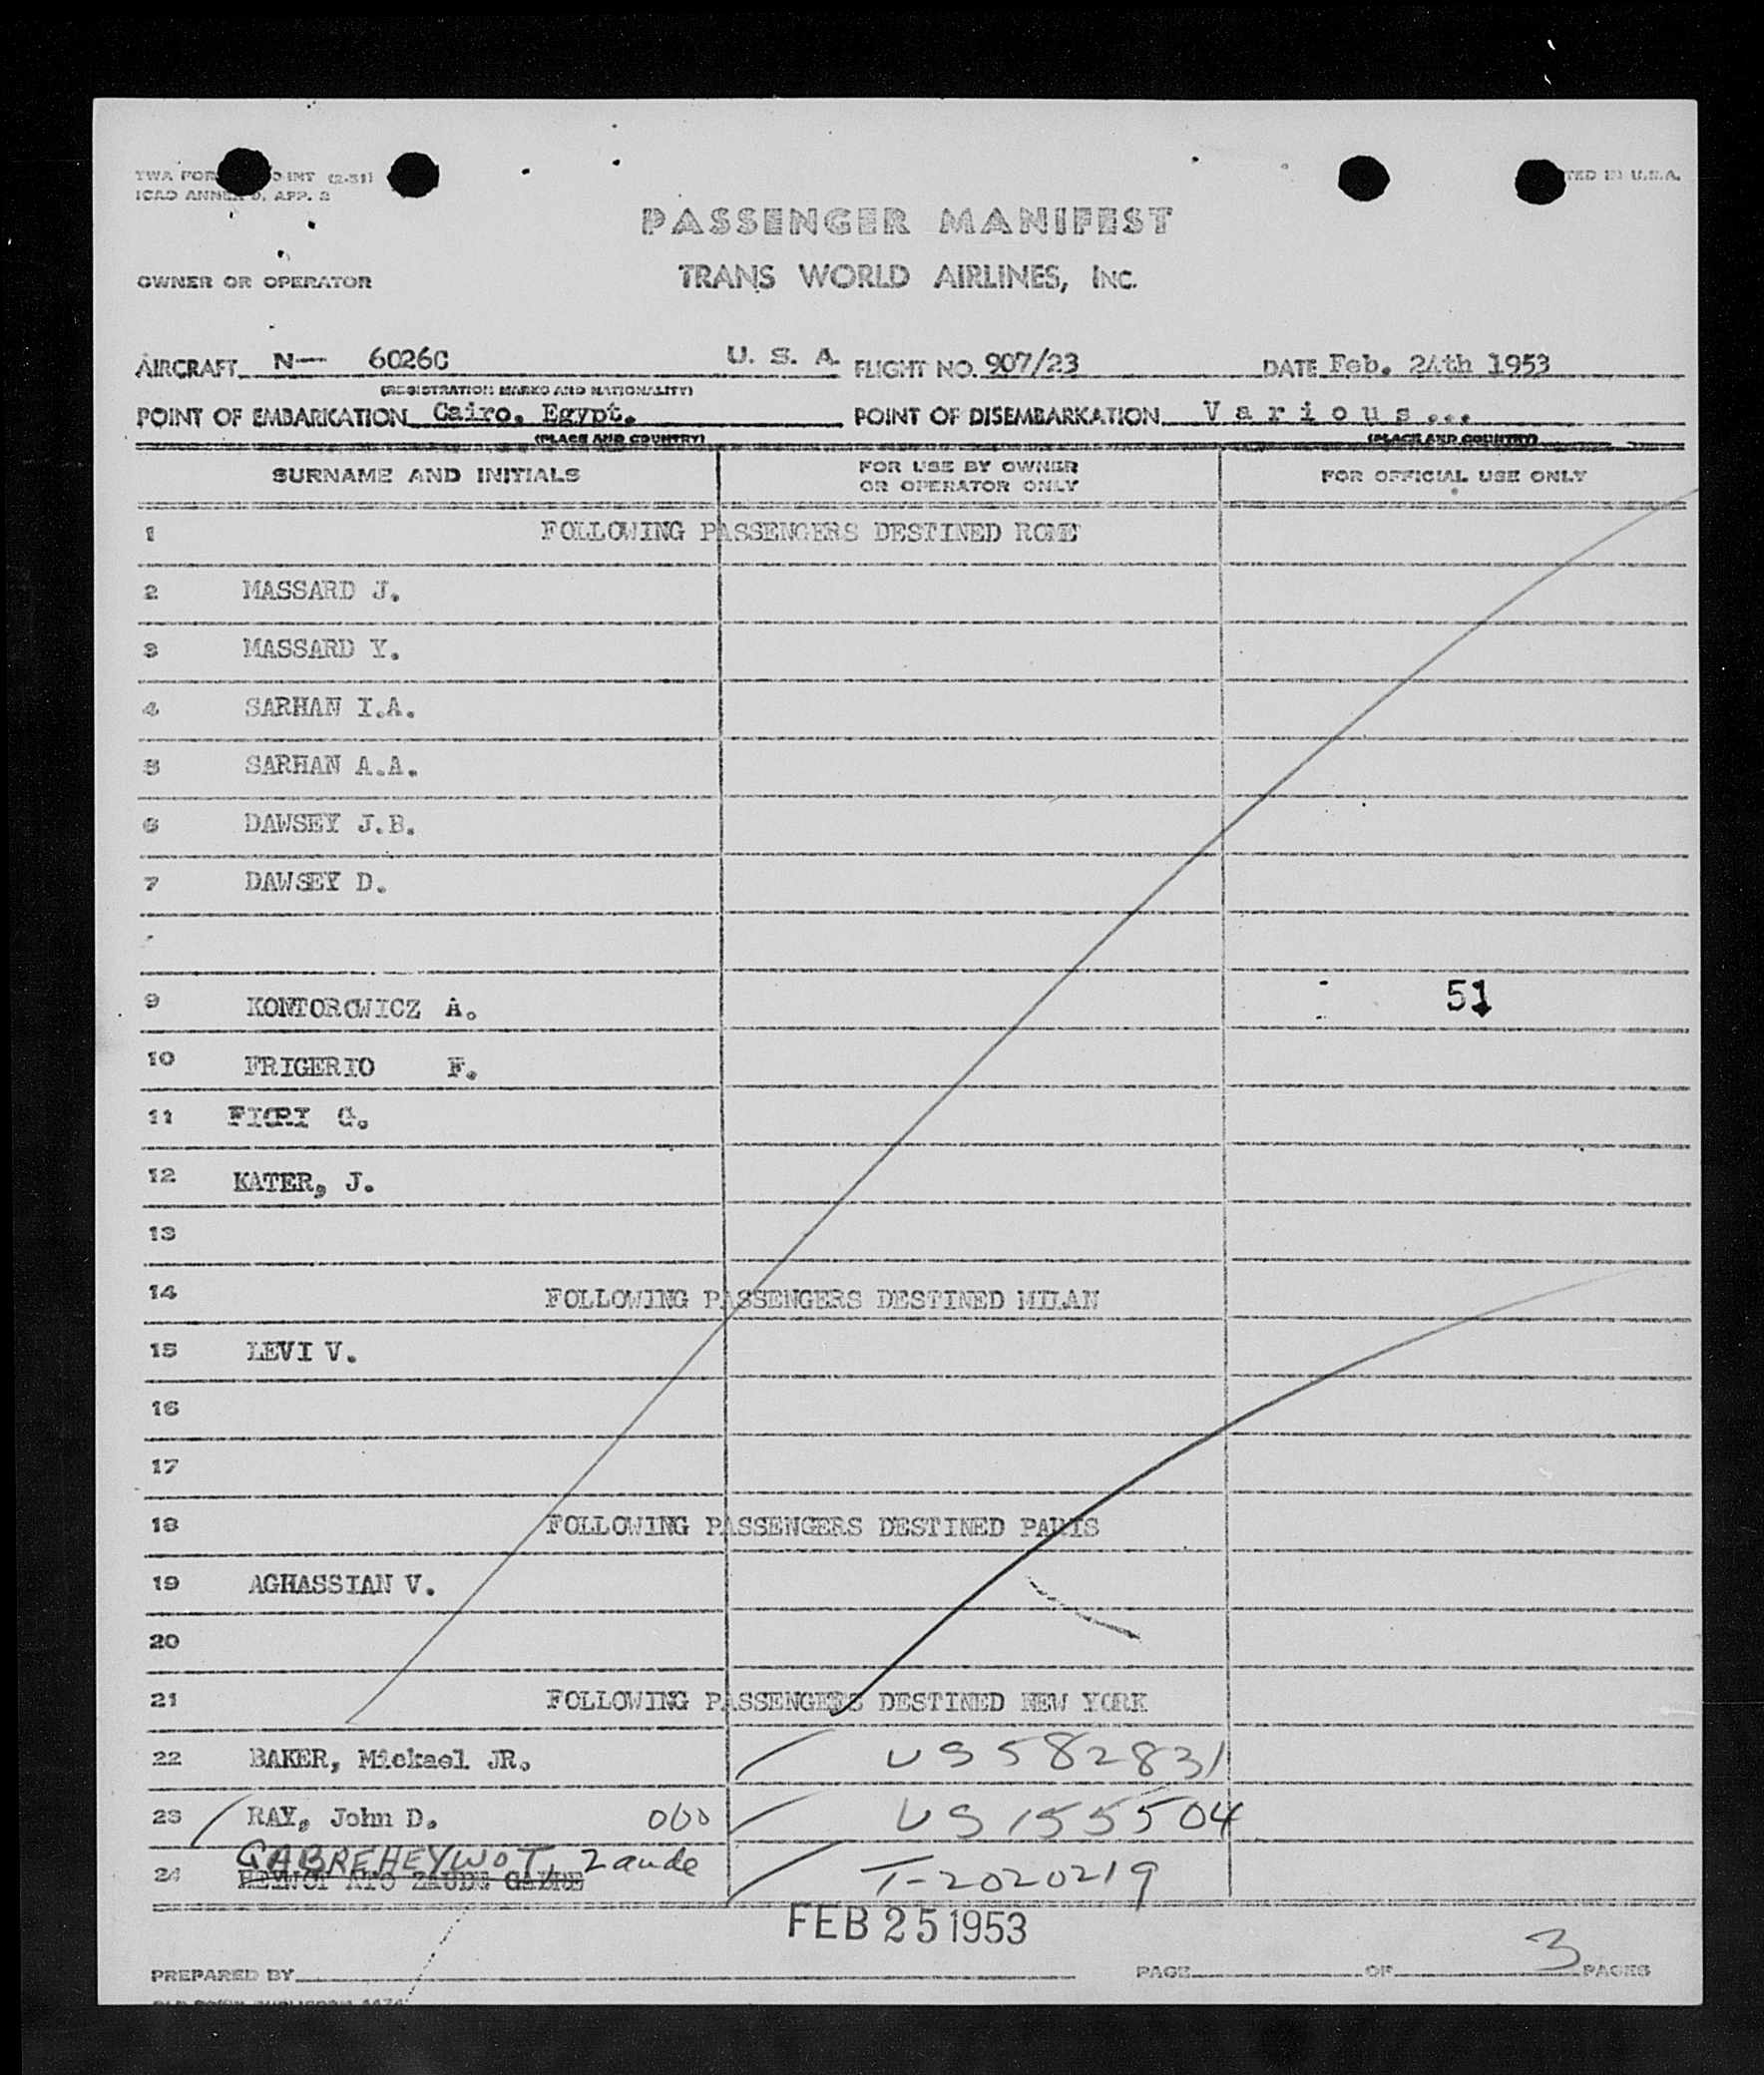 INT (2-51)
ICAO ANNEX 9, APP. 2
IN U.S.A.
PASSENGER MANIFEST
OWNER OR OPERATOR
TRANS WORLD AIRLINES, INC.
AIRCRAFT N— 6026C U. S. A. FLIGHT NO. 907/23 DATE Feb. 24th 1953
(REGISTRATION MARKS AND NATIONALITY)
POINT OF EMBARKATION Cairo, Egypt. POINT OF DISEMBARKATION V a r i o u s ...
(PLACE AND COUNTRY) (PLACE AND COUNTRY)
SURNAME AND INITIALS FOR USE BY OWNER OR OPERATOR ONLY FOR OFFICIAL USE ONLY
1 FOLLOWING PASSENGERS DESTINED ROME
2 MASSARD J.
3 MASSARD Y.
4 SARHAN I.A.
5 SARHAN A.A.
6 DAWSEY J.B.
7 DAWSEY D.
9 KONTOROWICZ A. 51
10 FRIGERIO F.
11 FIORI G.
12 KATER, J.
13
14 FOLLOWING PASSENGERS DESTINED MILAN
15 LEVI V.
16
17
18 FOLLOWING PASSENGERS DESTINED PARIS
19 AGHASSIAN V.
20
21 FOLLOWING PASSENGERS DESTINED NEW YORK
22 BAKER, Mickael JR. US 582831
23 RAY, John D. 000 US 155504
GABREHEYWOT, Zaude
24 HEYWOT ATO ZAUDE GABRE T-2020219
FEB 25 1953
PREPARED BY PAGE OF 3 PAGES